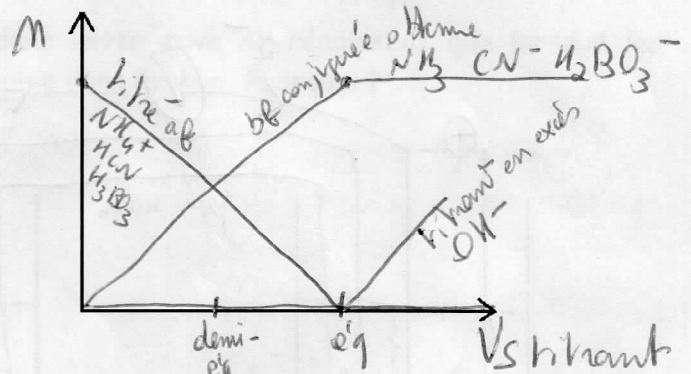 n
titré af
NH4+
HCN
H3BO3
bf conjuguée obtenue
NH3 CN- H2BO3-
titrant en excès
OH-
demi-
éq
éq
Vs titrant